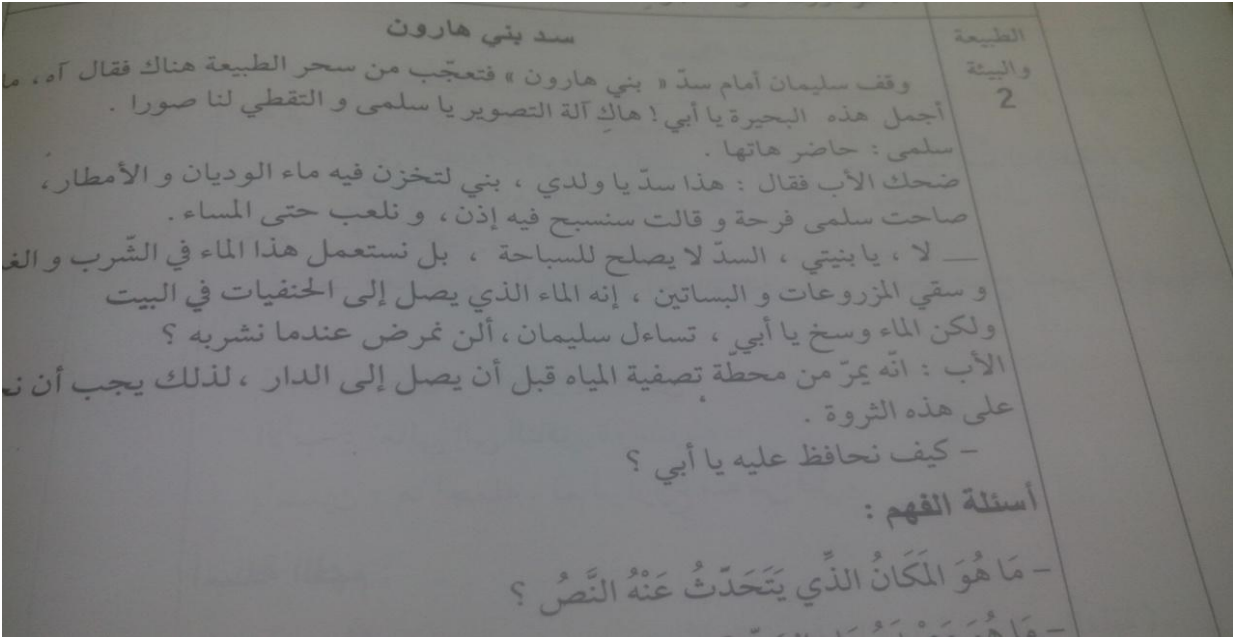 سد بني هارون
الطبيعة
والبيئة
2
وقف سليمان أمام سدّ « بني هارون » فتعجّب من سحر الطبيعة هناك فقال آه، ما
أجمل هذه البحيرة يا أبي ! هاكِ آلة التصوير يا سلمى و التقطي لنا صورا .
سلمى : حاضر هاتها .
ضحك الأب فقال : هذا سدّ يا ولدي ، بني لتخزن فيه ماء الوديان و الأمطار،
صاحت سلمى فرحة و قالت سنسبح فيه إذن، و نلعب حتى المساء .
__ لا ، يا بنيتي ، السدّ لا يصلح للسباحة ، بل نستعمل هذا الماء في الشّرب و
و سقي المزروعات و البساتين ، إنه الماء الذي يصل إلى الحنفيات في البيت
ولكن الماء وسخ يا أبي ، تساءل سليمان، ألن نمرض عندما نشربه ؟
الأب : انّه يمرّ من محطّة تصفية المياه قبل أن يصل إلى الدار ، لذلك يجب أن
على هذه الثروة .
- كيف نحافظ عليه يا أبي ؟
أسئلة الفهم :
- مَا هُوَ المَكَانُ الذَّي يَتَحَدَّثُ عَنْهُ النَّصُ ؟